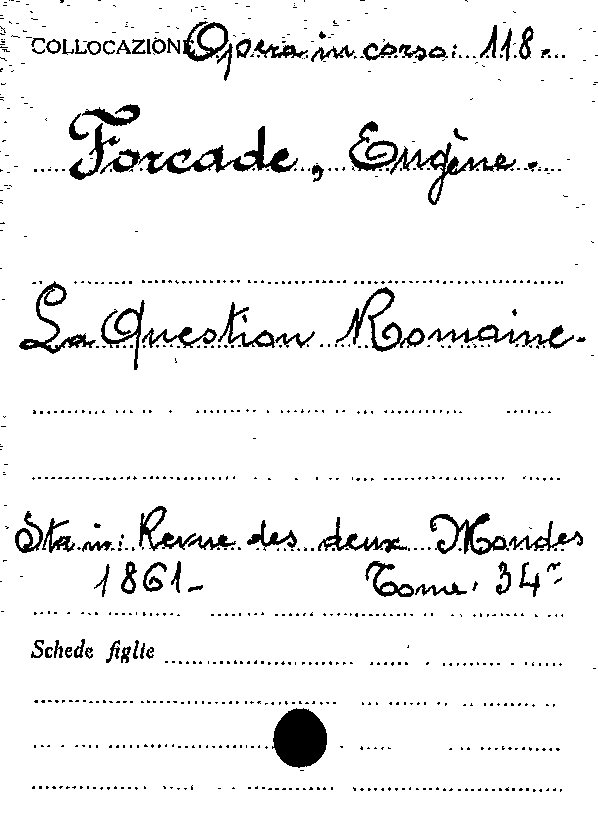 COLLOCAZIONE Opera in corso: 118.
Forcade, Eugène.
La Question Romaine.
Sta in: Revue des deux Mondes
1861_ Tome. 34
Schede figlie